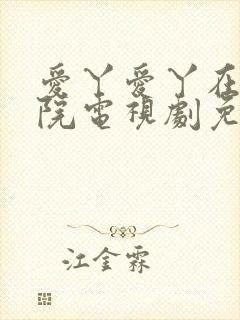 愛丫愛丫在
院電視劇免
江金霖